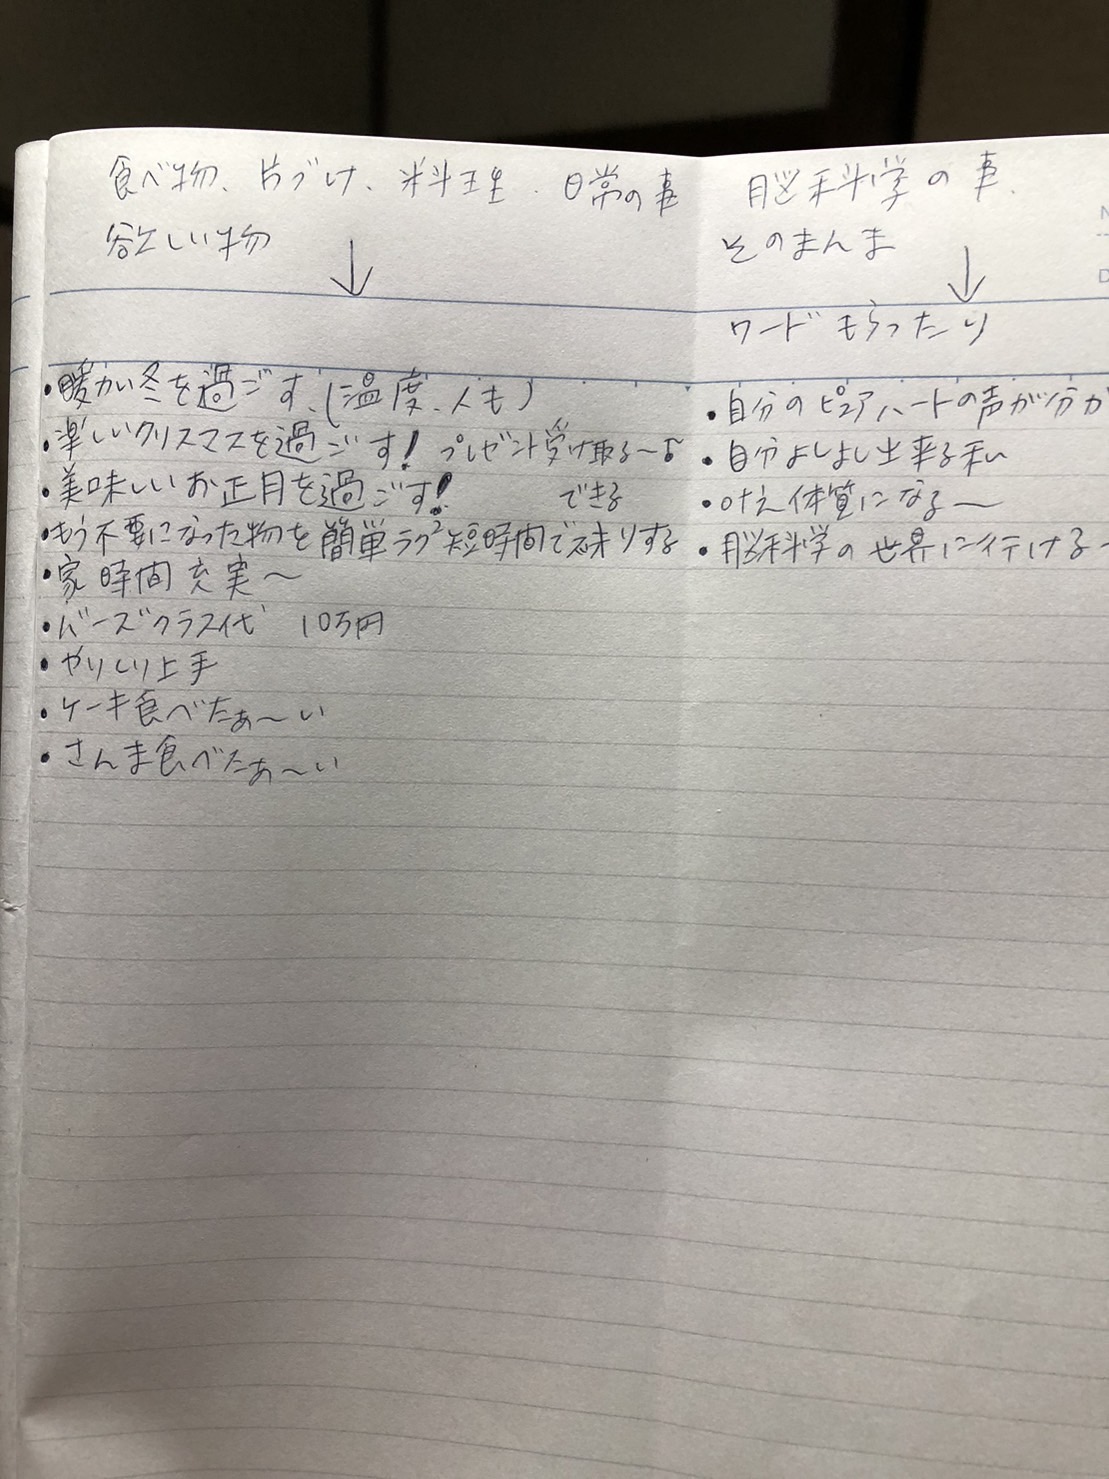 食べ物、片づけ、料理、日常の事
欲しい物
↓
・暖かい冬を過ごす、(温度、人も)
・楽しいクリスマスを過ごす! プレゼント受け取る〜♪
・美味しいお正月を過ごす! できる
・もう不要になった物を簡単ラク²短時間でお来りする
・家時間充実〜
・バーズクラス代 10万円
・やりくり上手
・ケーキ食べたぁ〜い
・さんま食べたぁ〜い
脳科学の事、
そのまんま
↓
ワードもらったり
・自分のピュアハートの声が分か
・自分よしよし出来る私
・叶え体質になる〜
・脳科学の世界に行ける〜